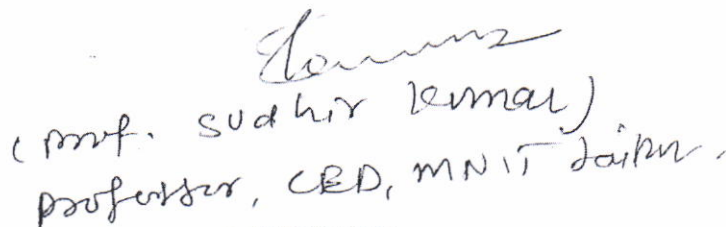 (Prof. Sudhir Kumar)
Professor, CED, MNIT Jaipur.